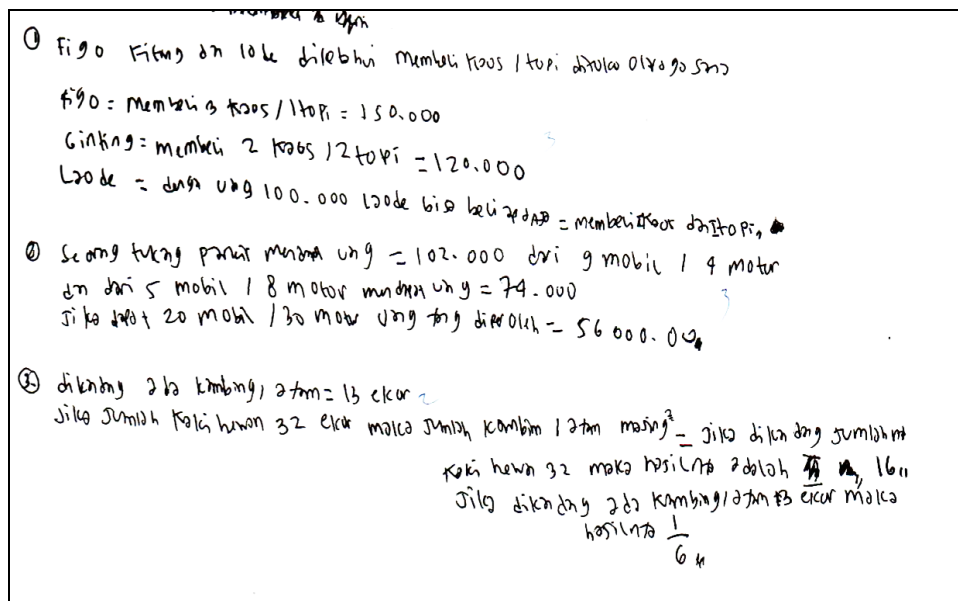 ① Figo Fitng dn lode dilebhui membeli kaos / topi ditoko olraga sma
figo = membeli 3 kaos / 1 topi = 150.000
Ginting = membeli 2 kaos / 2 topi = 120.000
Laode = dengn uang 100.000 laode bisa beli = membeli kaos dan topi
② Seorng tukng parkir mendpt ung = 102.000 dri 9 mobil / 4 motor
dn dari 5 mobil / 8 motor mendpat ung = 74.000
Jika dapat 20 mobil / 30 motor uang yng diperoleh = 56 000.00
③ dikndng ada kambing, ayam = 13 ekor
Jika Jumlah kaki hewan 32 ekor maka Jumlah kambing / ayam masing² = Jika dikandang jumlahnya
kaki hewn 32 maka hasilnya adalah 16
Jika dikandang ada kambing / ayam 13 ekor maka
hasilnya 1
6